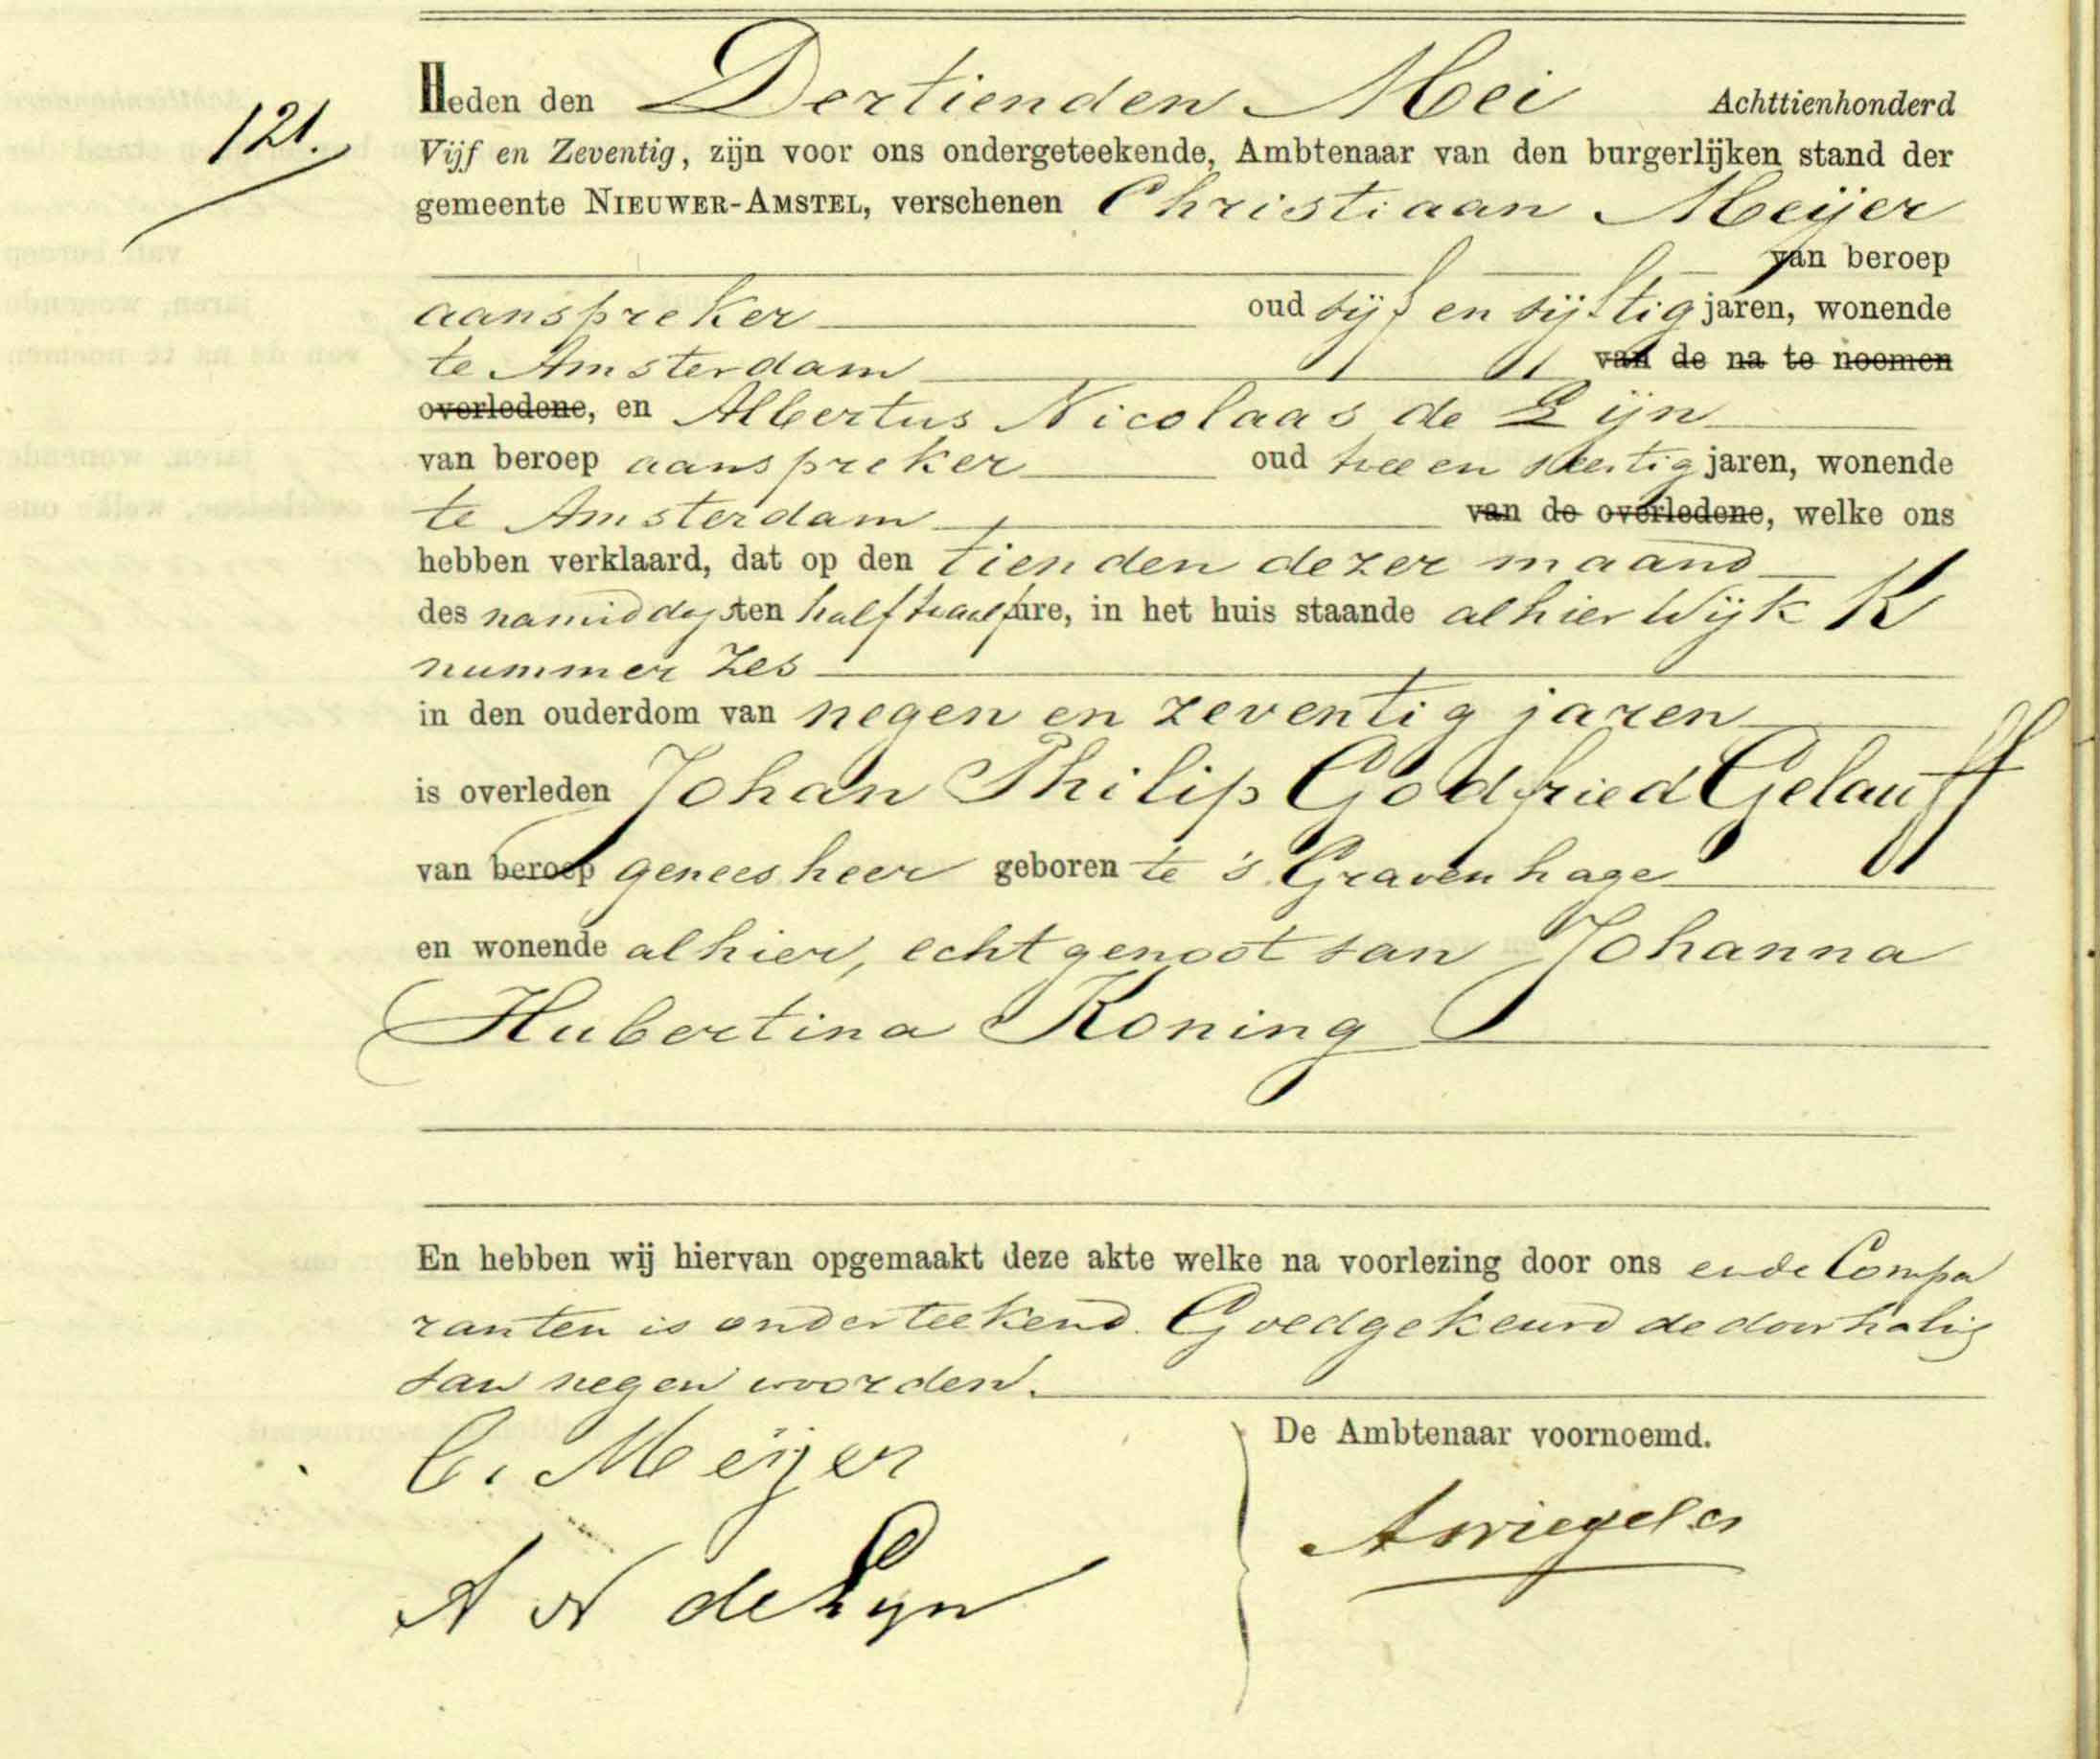 121.
Heden den Dertienden Mei Achttienhonderd
Vijf en Zeventig, zijn voor ons ondergeteekende, Ambtenaar van den burgerlijken stand der
gemeente NIEUWER-AMSTEL, verschenen Christiaan Meijer
van beroep
aanspreker oud vijf en vijftig jaren, wonende
te Amsterdam van de na te noemen
overledene, en Albertus Nicolaas de Lijn
van beroep aanspreker oud twee en veertig jaren, wonende
te Amsterdam van de overledene, welke ons
hebben verklaard, dat op den tienden dezer maand
des namiddags ten half twaalf ure, in het huis staande alhier Wijk K
nummer zes
in den ouderdom van negen en zeventig jaren
is overleden Johan Philip Godfried Gelauff
van beroep geneesheer geboren te 's Gravenhage
en wonende alhier, echtgenoot van Johanna
Hubertina Koning
En hebben wij hiervan opgemaakt deze akte welke na voorlezing door ons en de Compa
ranten is onderteekend. Goedgekeurd de doorhaling
van negen woorden.
De Ambtenaar voornoemd.
C. Meijer
A N de Lyn